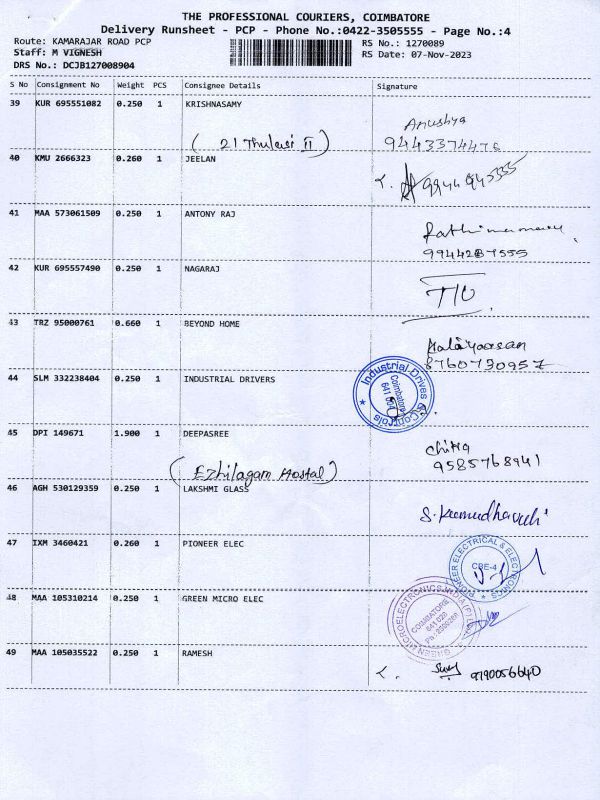 THE PROFESSIONAL COURIERS, COIMBATORE
Delivery Runsheet - PCP - Phone No.:0422-3505555 - Page No.:4
Route: KAMARAJAR ROAD PCP
RS No.: 1270089
Staff: M VIGNESH
RS Date: 07-Nov-2023
DRS No.: DCJB127008904
S No Consignment No Weight PCS Consignee Details Signature
39 KUR 695551082 0.250 1 KRISHNASAMY
Anushya
(21 Thulasi II) 9443374476
40 KMU 2666323 0.260 1 JEELAN
9944945555
41 MAA 573061509 0.250 1 ANTONY RAJ
9944287555
42 KUR 695557490 0.250 1 NAGARAJ
43 TRZ 95000761 0.660 1 BEYOND HOME
8760730957
44 SLM 332238404 0.250 1 INDUSTRIAL DRIVERS
Industrial Drives & Controls
Coimbatore
45 DPI 149671 1.900 1 DEEPASREE
Chitra
9585768941
(Ezhilagam Hostal)
46 AGH 530129359 0.250 1 LAKSHMI GLASS
S. Kumudhavalli
47 IXM 3460421 0.260 1 PIONEER ELEC
PIONEER ELECTRICAL & ELECTRONICS
CBE-4
48 MAA 105310214 0.250 1 GREEN MICRO ELEC
GREEN MICROELECTRONICS INDIA (P) LTD.
COIMBATORE
49 MAA 105035522 0.250 1 RAMESH
9190056640